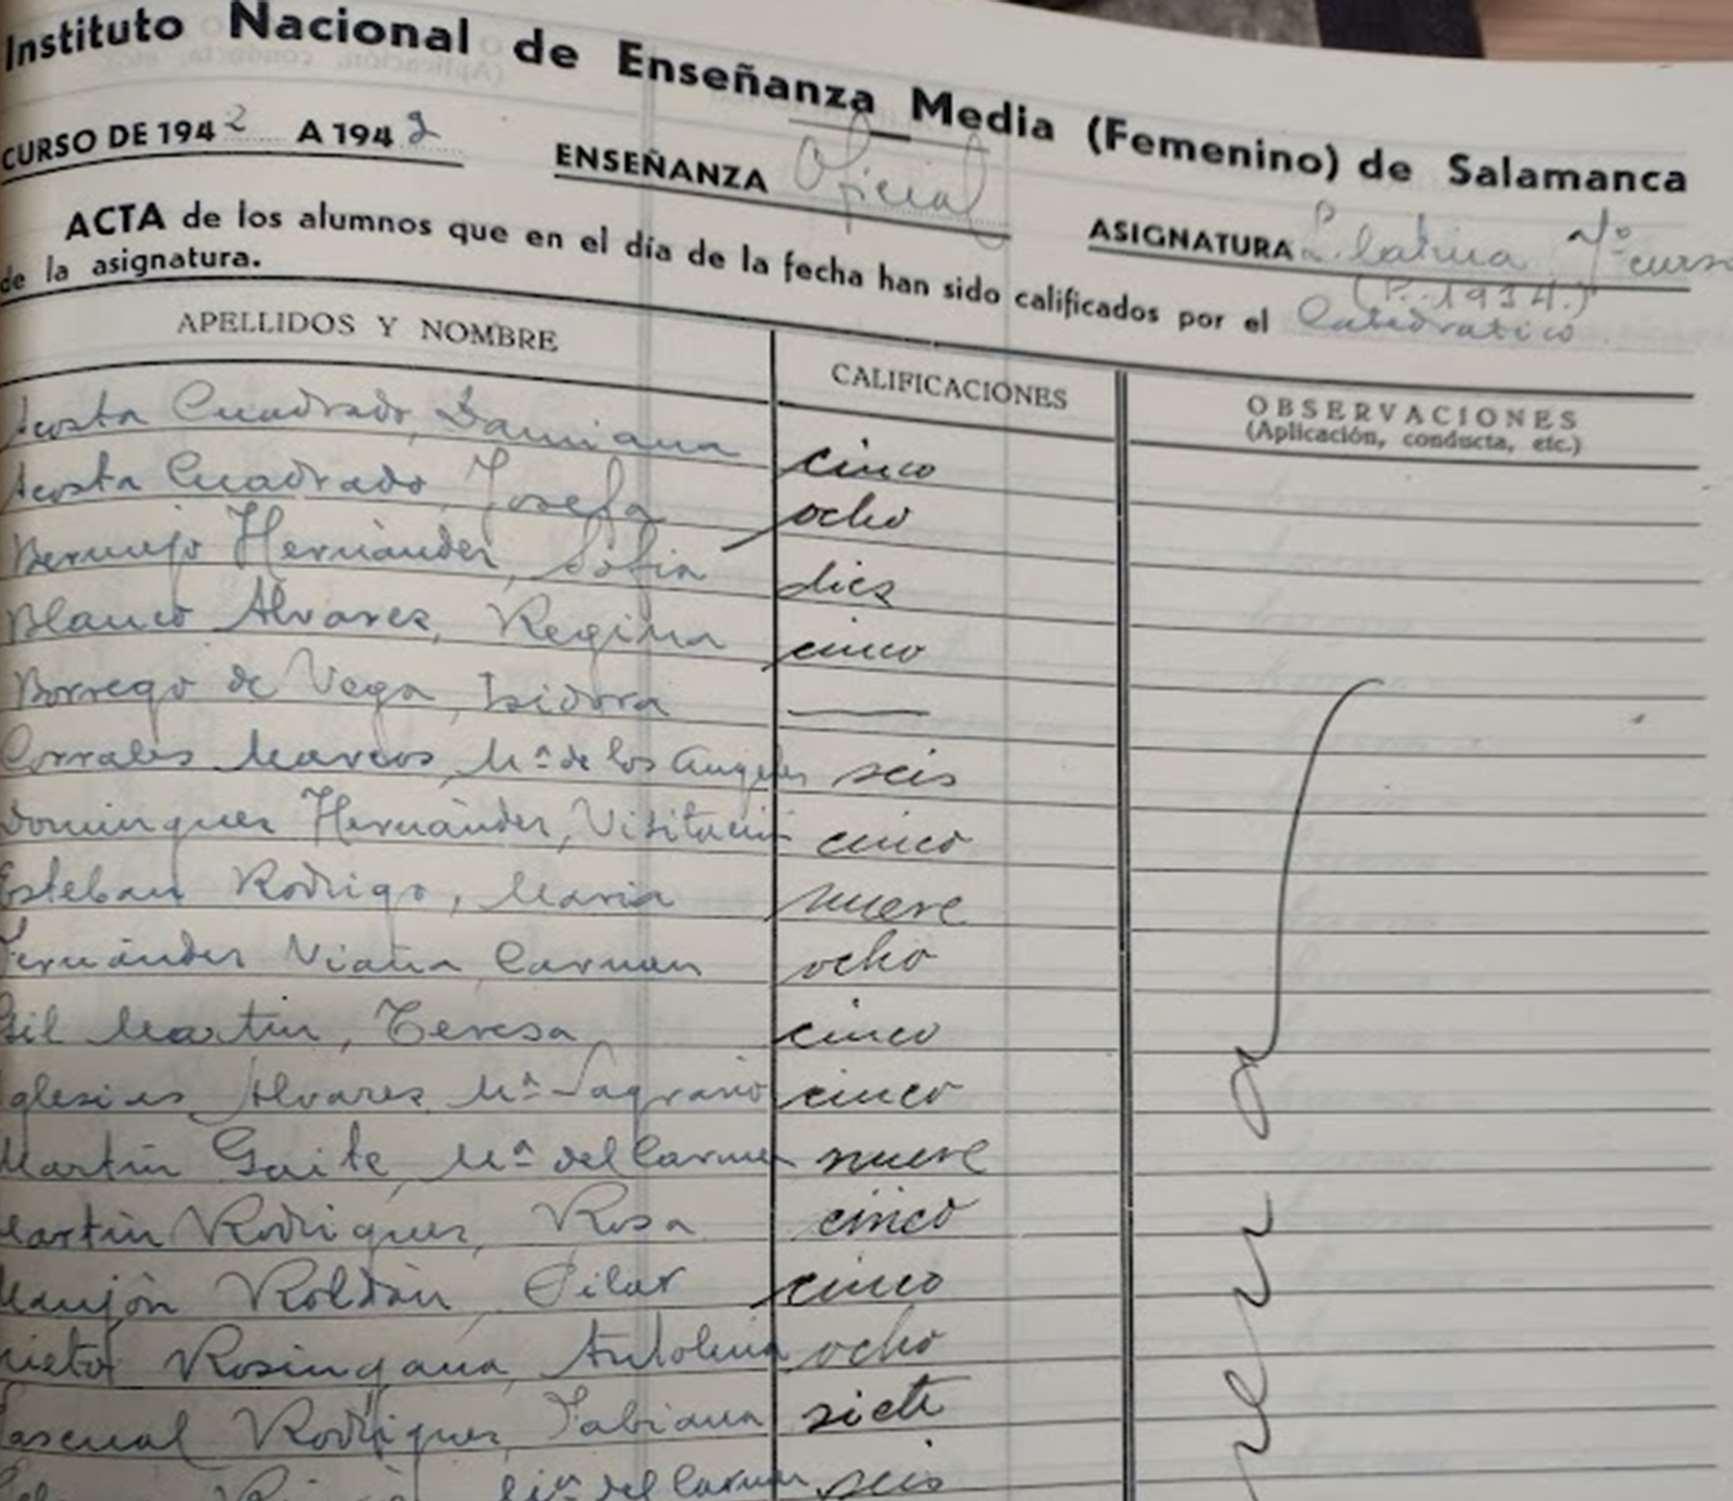 Instituto Nacional de Enseñanza Media (Femenino) de Salamanca
CURSO DE 1942 A 1942 ENSEÑANZA Oficial ASIGNATURA L. latina 7º curso
(P. 1934.)
ACTA de los alumnos que en el día de la fecha han sido calificados por el Catedratico
de la asignatura.
APELLIDOS Y NOMBRE CALIFICACIONES OBSERVACIONES
(Aplicación, conducta, etc.)
Acosta Cuadrado, Damiana cinco
Acosta Cuadrado, Josefa ocho
Bermejo Hernández, Sofia diez
Blanco Alvarez, Regina cinco
Borrego de Vega, Isidora —
Corrales Marcos, Mª de los Angeles seis
Dominguez Hernández, Visitación cinco
Esteban Rodrigo, Maria nueve
Fernández Viaña Carmen ocho
Gil Martin, Teresa cinco
Iglesias Alvarez Mª Sagrario cinco
Martin Gaite, Mª del Carmen nueve
Martin Rodriguez, Rosa cinco
Manjón Roldán, Pilar cinco
Nieto Antolina ocho
Pascual Rodriguez, Fabiana siete
del Carmen seis